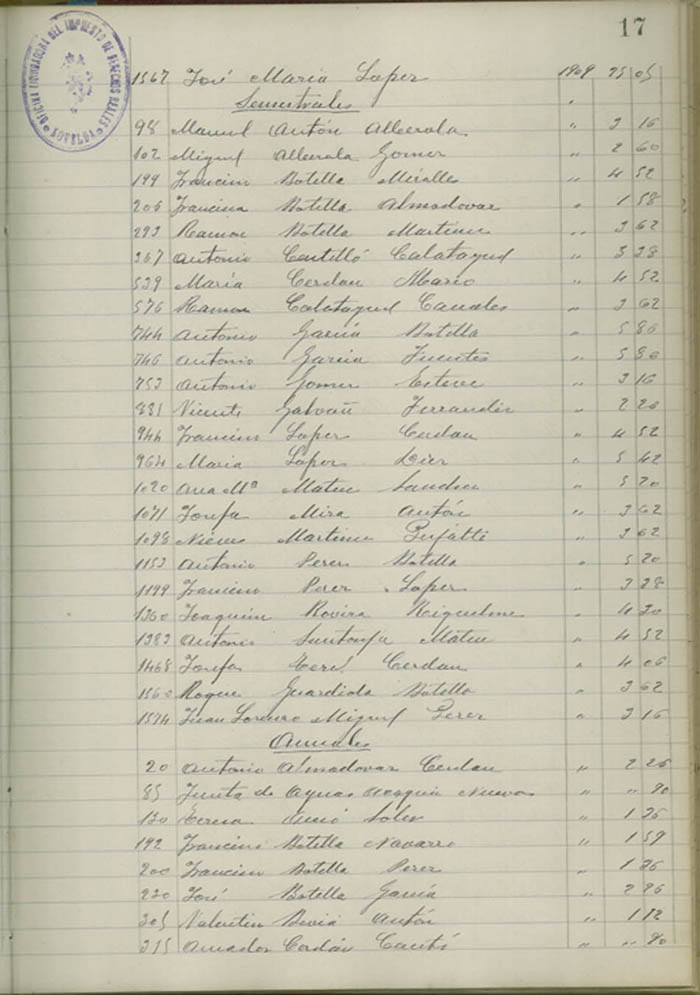 17
OFICINA LIQUIDADORA DEL IMPUESTO DE DERECHOS REALES
NOVELDA
1567 José María Lopez 1909 25 05
Semestrales
98 Manuel Antón Alberola " 3 16
102 Miguel Alberola Gomez " 2 60
199 Francisco Botella Miralles " 4 52
206 Francisca Botella Almodovar " 1 58
293 Ramon Botella Martinez " 3 62
367 Antonio Cantelló Calatayud " 3 28
539 María Cerdan Mario " 4 52
576 Ramon Calatayud Canales " 3 62
744 Antonio García Botella " 5 86
746 Antonio Garcia Fuentes " 5 86
753 Antonio Gomez Esteve " 3 16
881 Vicente Galvañ Ferrandez " 2 20
944 Francisco Lopez Cerdan " 4 52
964 Maria Lopez Dier " 5 42
1020 Ana Mª Mateu Sanchez " 5 20
1071 Josefa Mira Antón " 3 62
1098 Nieves Martinez " 3 62
1153 Antonio Perez Botella " 5 20
1199 Francisco Perez Lopez " 3 28
1360 Joaquin Rovira Riquelme " 4 30
1383 Antonio Mateu " 4 52
1468 Josefa Cerdan " 4 06
1560 Roque Guardiola Botella " 3 62
1594 Juan Lorenzo Miguel Perez " 3 16
Anuales
20 Antonio Almodovar Cerdan " 2 26
85 Junta de Aguas Nuevas " " 90
130 Teresa " 1 36
192 Francisco Botella Navarro " 1 59
200 Francisco Botella Perez " 1 36
220 José Botella García " 2 26
305 Valentin Antón " 1 12
315 Amador Cerdán Cantó " " 90